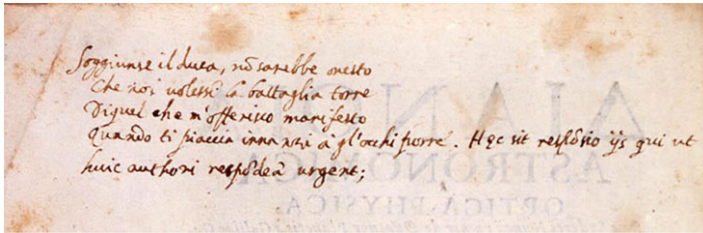 Soggiunse il duca, nõ sarebbe onesto
Che noi volessi la battaglia torre
Di quel che m'offerisco manifesto
Quando ti piaccia innanzi à gl'occhi porre. Hęc sit respõsio ijs qui ut
huic authori respõdeã urgent;